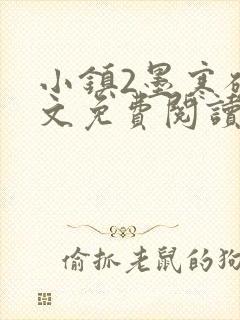 小鎮2墨寒
文免費閱讀
偷抓老鼠的狗